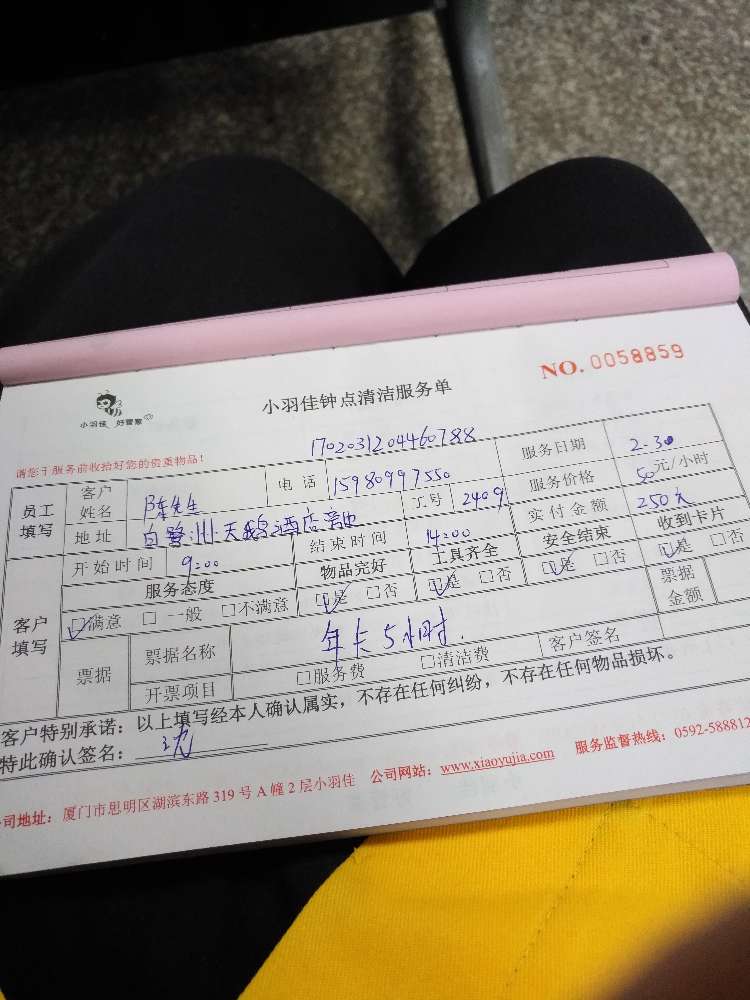 小羽佳 好管家
小羽佳钟点清洁服务单
NO. 0058859
请您于服务前收拾好您的贵重物品!
1702031204460788
员工填写 客户姓名 陈先生 电话 15980997550 服务日期 2.30
地址 白鹭洲天鹅酒店 工号 2409 服务价格 50元/小时
客户填写 开始时间 9:00 结束时间 14:00 实付金额 250元
服务态度 物品完好 工具齐全 安全结束 收到卡片
☑满意 □一般 □不满意 ☑是 □否 ☑是 □否 ☑是 □否 ☑是 □否
票据 票据名称 年卡5小时. 票据金额
开票项目 □服务费 □清洁费 客户签名
客户特别承诺:以上填写经本人确认属实,不存在任何纠纷,不存在任何物品损坏。
特此确认签名:
司地址:厦门市思明区湖滨东路319号A幢2层小羽佳 公司网站:www.xiaoyujia.com 服务监督热线:0592-588812